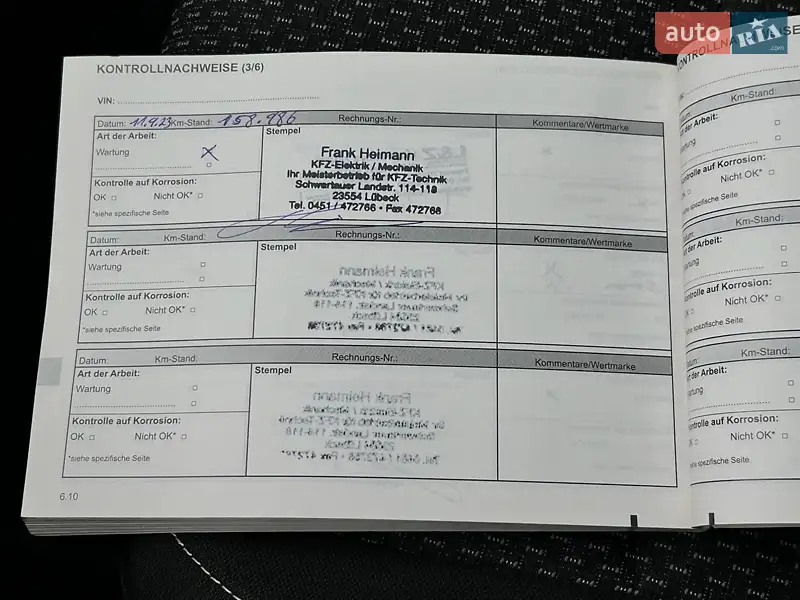 auto RIA .com
KONTROLLNACHWEISE (3/6)
VIN:
Datum: 11.9.23 Km-Stand: 158.986 Rechnungs-Nr.: Kommentare/Wertmarke
Art der Arbeit:
Wartung X
Kontrolle auf Korrosion:
OK Nicht OK*
*siehe spezifische Seite
Stempel
Frank Heimann
KFZ-Elektrik / Mechanik
Ihr Meisterbetrieb für KFZ-Technik
Schwartauer Landstr. 114-118
23554 Lübeck
Tel. 0451 / 472766 • Fax 472768
Datum: Km-Stand: Rechnungs-Nr.: Kommentare/Wertmarke
Art der Arbeit:
Wartung
Kontrolle auf Korrosion:
OK Nicht OK*
*siehe spezifische Seite
Stempel
Datum: Km-Stand: Rechnungs-Nr.: Kommentare/Wertmarke
Art der Arbeit:
Wartung
Kontrolle auf Korrosion:
OK Nicht OK*
*siehe spezifische Seite
Stempel
6.10
Km-Stand:
der Arbeit:
auf Korrosion:
Nicht OK*
spezifische Seite
Km-Stand:
der Arbeit:
auf Korrosion:
Nicht OK*
spezifische Seite
Km-Stand:
der Arbeit:
auf Korrosion:
Nicht OK*
spezifische Seite